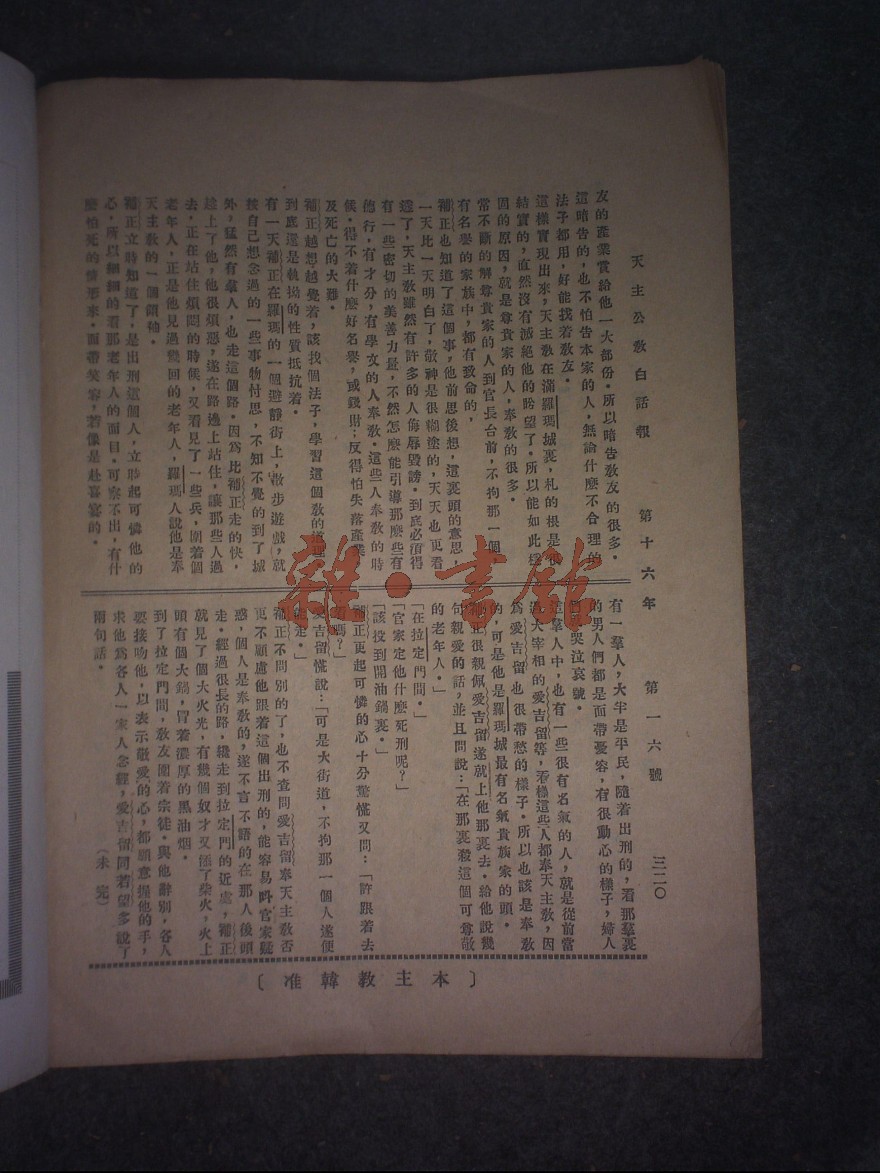 天主公教白話報　第十六年　第一六號　三二〇
友的產業賞給他一大部份。所以暗告敎友的很多。
這暗告的，也不怕告本家的人，無論什麽不合理的
法子都用，好能找着敎友。
這樣實現出來，天主敎在滿羅瑪城裏，札的根是很
結實的，直然沒有滅絕他的盼望了。所以能如此穩
固的原因，就是尊貴家的人，奉敎的很多。
常不斷的解尊貴家的人到官長台前，不拘那一個
有名譽的家族中，都有致命的，
補正也知道了這個事，他前思後想，這裏頭的意思，
一天比一天明白了，敬神是很糊塗的，天天也更看
透了，天主敎雖然有許多的人侮辱毀謗。到底必須得
有一些密切的美善力量，不然怎麽能引導那麽些有
德行，有才分，有學文的人奉敎。這些人奉敎的時
候，得不着什麽好名譽，或錢財；反得怕失落產業
及死亡的大難。
補正越想越覺着，該找個法子，學習這個敎的
到底還是執拗的性質抵抗着。
有一天補正在羅瑪的一個避靜街上，散步遊戲，就
按自己想念過的一些事物忖思，不知不覺的到了城
外，猛然有羣人，也走這個路。因爲比補正走的快，
趁上了他，他很煩惡，遂在路邊上站住，讓那些人過
去，正在站住煩悶的時候，又看見了一些兵，圍着個
老年人，正是他見過幾回的老年人，羅瑪人說他是奉
天主敎的一個領袖。
補正立時知道了，是出刑這個人，立時起可憐他的
心，所以細細的看那老年人的面目，可察不出，有什
麽怕死的情形來。面帶笑容，若像是赴喜宴的。
有一羣人，大半是平民，隨着出刑的，看那羣裏
的男人們都是面帶憂容，有很動心的樣子，婦人
哭泣哀號。
這羣人中，也有一些很有名氣的人，就是從前當
過大宰相的愛吉留等，看樣這些人都奉天主敎，因
爲愛吉留也很帶愁的樣子。所以也該是奉敎
的，可是他是羅瑪城最有名氣貴族家的頭。
補正很親佩愛吉留遂就上他那裏去。給他說幾
句親愛的話，並且問說：「在那裏殺這個可尊敬
的老年人。」
「在拉定門間。」
「官家定他什麽死刑呢？」
「該投到開油鍋裏。」
補正更起可憐的心十分驚慌又問：「許跟着去
看嗎？」
愛吉留慌說：「可是大街道，不拘那一個人遂便
能走。」
補正不問別的了，也不查問愛吉留奉天主敎否
更不顧慮他跟着這個出刑的，能容易呌官家疑
惑，個人是奉敎的，遂不言不語的在那人後頭
走。經過很長的路，纔走到拉定門的近處，補正
就見了個大火光，有幾個奴才又添了柴火，火上
頭有個大鍋，冒着濃厚的黑油烟。
到了拉定門間，敎友圍着宗徒。與他辭別，各人
要接吻他，以表示敬愛的心，都願意握他的手，
求他爲各人一家人念經，愛吉留同若望多說了
兩句話。　（未完）
〔本主敎韓准〕
雜·書館